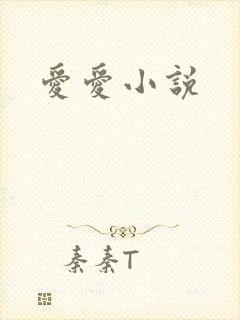 愛愛小說
秦秦T